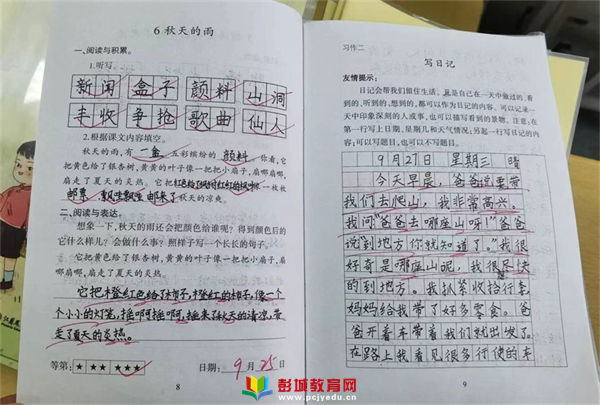 6 秋天的雨
一、阅读与积累。
1.听写。
新闻 盒子 颜料 山洞
丰收 争抢 歌曲 仙人
2.根据课文内容填空。
秋天的雨,有一盒五彩缤纷的颜料。你看,它
把黄色给了银杏树,黄黄的叶子像一把把小扇子,扇哪扇哪,
扇走了夏天的炎热。它把红色给了枫树,红红的枫叶像一枚枚
邮票,飘哇飘哇,邮来了秋天的凉爽。
二、阅读与表达。
想象一下,秋天的雨还会把颜色给谁呢?得到颜色后的
它什么样儿?会做什么事?照样子写一个长长的句子。
它把黄色给了银杏树,黄黄的叶子像一把把小扇子,扇
哪扇哪,扇走了夏天的炎热。
它把橙红色给了柿子,橙红的柿子,像一个
个小小的灯笼,摇啊摇啊,摇来了秋天的清凉,带
走了夏天的炎热。
等第: ★★★ ★★★ 日期: 9 月 25 日
8
习作二
写日记
友情提示:
日记会帮我们留住生活。凡是自己在一天中做过的,看
到的,听到的,想到的,都可以作为日记的内容。可以记录一
天中印象深刻的人或事,也可以描写看到的景物。注意:在
第一行写上日期、星期几和天气情况;另起一行写日记的内
容;可以写题目,也可以不写题目。
9月27日 星期三 晴
今天早晨,爸爸说要带
我们去爬山,我非常高兴。
我问“爸爸去哪座山呀!”爸爸
说“到地方你就知道了。”我很
好奇是哪座山呢,我很尽快
的到地方。我抓紧收拾行李,
妈妈给我带了好多零食。爸
爸开着车带着我们就出发了。
在路上我看见很多行使的车
9
彭城教育网
www.pcjyedu.cn